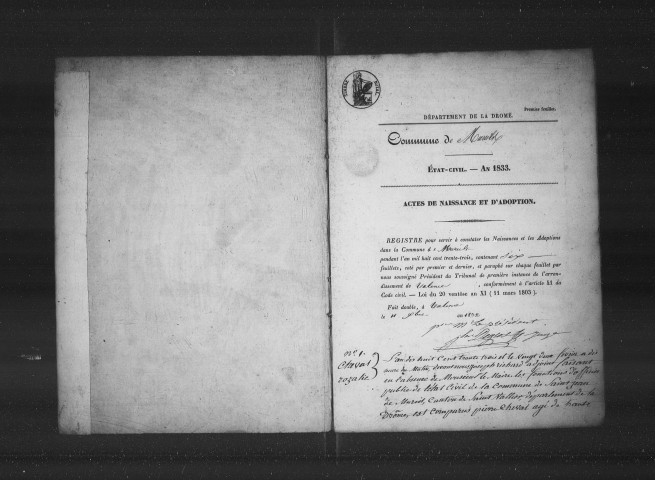 TIMBRE ROYAL
Premier feuillet.
DÉPARTEMENT DE LA DROME.
Commune de
ÉTAT-CIVIL. — AN 1833.
ACTES DE NAISSANCE ET D'ADOPTION.
REGISTRE pour servir à constater les Naissances et les Adoptions
dans la Commune d
pendant l'an mil huit cent trente-trois, contenant six
feuillets, coté par premier et dernier, et paraphé sur chaque feuillet par
nous soussigné Président du Tribunal de première instance de l'arron-
dissement de Valence, conformément à l'article 41 du
Code civil. — Loi du 20 ventôse an XI (11 mars 1803).
Fait double, à Valence
le Xbre an 1832
pr Mr le président
juge
n° 1.
Cheval
rozalie
L'an dix huit cent trente trois et le vingt deux a dix
heures du Matin, devant nous joseph adjoint faisant
en l'absence de Monsieur le Maire les fonctions d'officier
public de l'état Civil de la commune de Saint
de Canton de Saint Vallier, département de la
Drôme, est comparu pierre cheval agé de trente